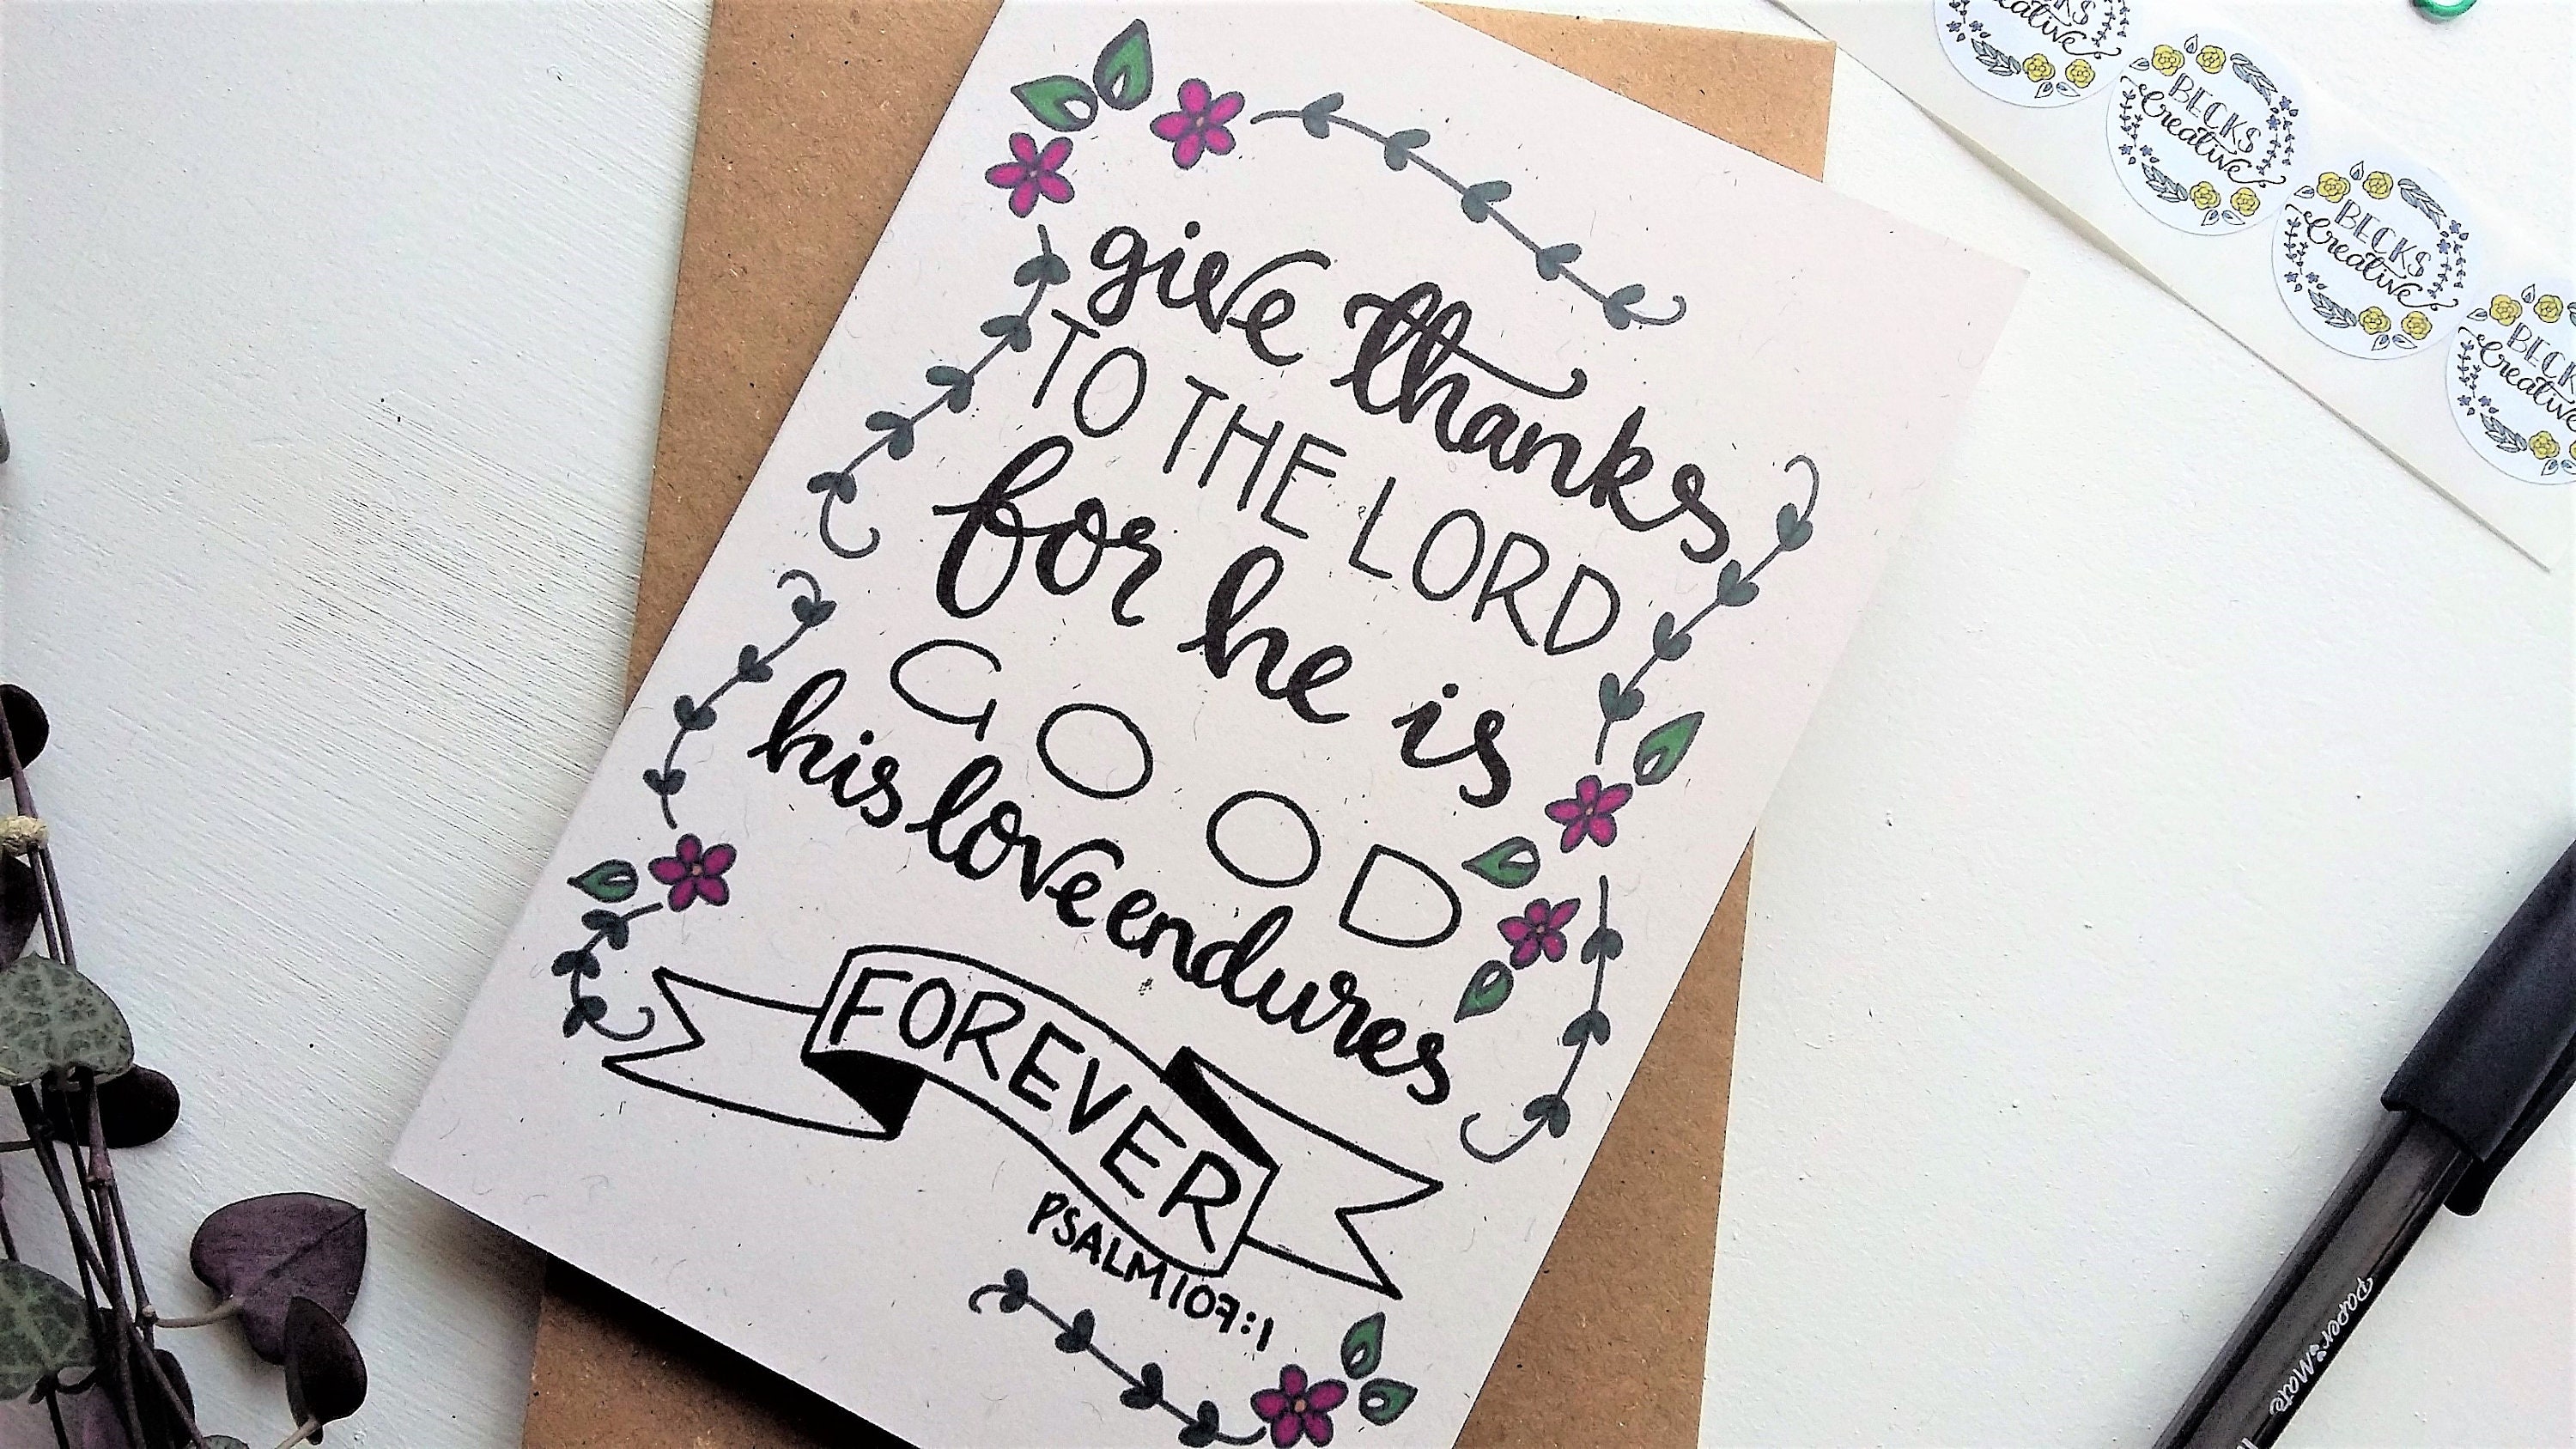 give thanks
TO THE LORD
for he is
GOOD
his love endures
FOREVER
PSALM 107:1
creative
BECKS
creative
BECKS
creative
BECK
creative
Paper Mate